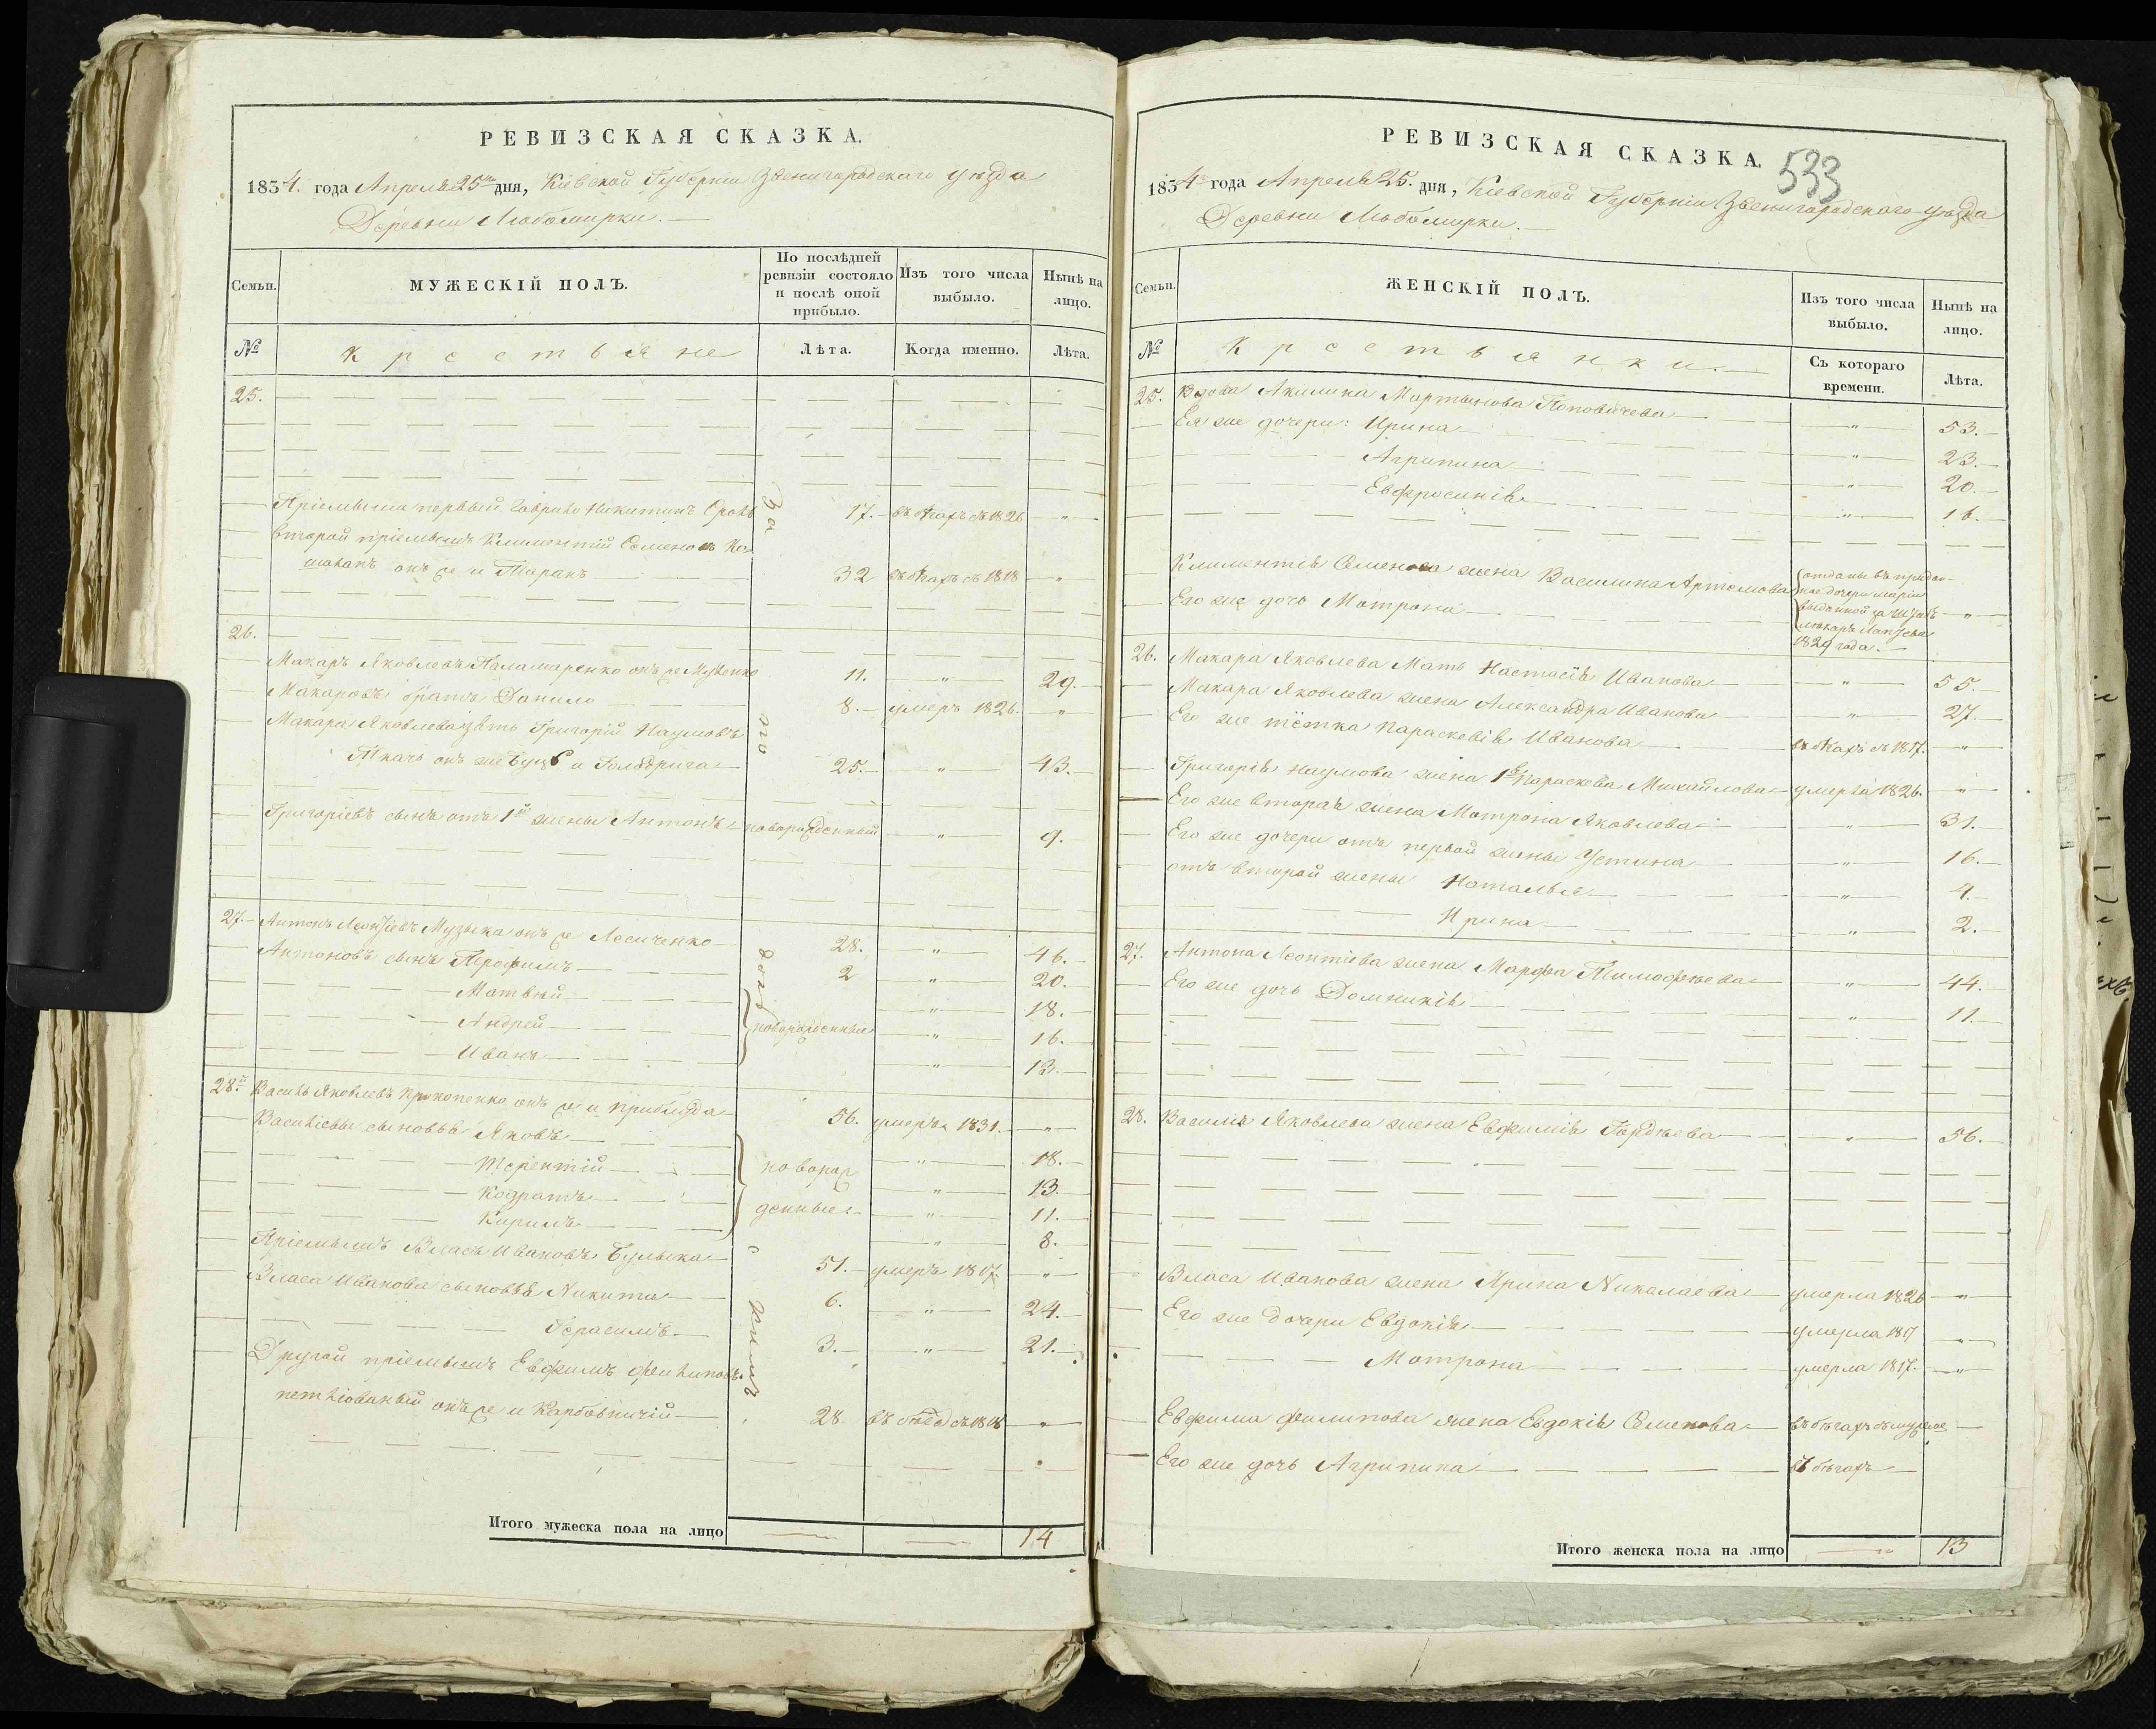 РЕВИЗСКАЯ СКАЗКА.
1834. года Апреля 25го дня, Кіевской Губерніи Звенигородскаго уезда
Деревни Любомирки.
Семьи.
МУЖЕСКІЙ ПОЛЪ.
По послѣдней ревизіи состояло и послѣ оной прибыло.
Изъ того числа выбыло.
Нынѣ на лицо.
№
Крестьяне
Лѣта.
Когда именно.
Лѣта.
25.
Пріемыши первый Гаврило Никитинъ 17. въ бѣгахъ съ 1826 "
второй пріемышъ Климентій Семеновъ
онъ же и Таранъ 32 въ бѣгахъ съ 1818 "
26.
Макаръ Яковлевъ Паламаренко онъ же 11. " 29.
Макаровъ братъ Данило 8. умеръ 1826. "
Макара Яковлева зять Григорій Наумовъ
Ткачъ онъ же и 25. " 43.
Григоріевъ сынъ отъ 1й жены Антонъ новорожденный " 9.
27. Антонъ Леонтіевъ Музыка онъ же Лесиченко 28. " 46.
Антоновъ сынъ Трофимъ 2 " 20.
Матвѣй " 18.
Андрей новорожденные " 16.
Иванъ " 13.
28. Василь Яковлевъ Прокопенко онъ же и Приблуда 56. умеръ 1831. "
Васильевы сыновья Яковъ " 18.
Терентій новорож " 13.
Кодратъ денные " 11.
Кирилъ " 8.
Пріемышъ Власъ Ивановъ Булыка 51. умеръ 1817. "
Власа Иванова сыновья Никита 6. " 24.
Герасимъ 3. " 21.
Другой пріемышъ Евфимъ Филиповъ
онъ же и 28. "
Итого мужеска пола на лицо 14
РЕВИЗСКАЯ СКАЗКА.
533
1834 года Апреля 25. дня, Кіевской Губерніи Звенигородскаго уезда
Деревни Любомирки.
Семьи.
ЖЕНСКІЙ ПОЛЪ.
Изъ того числа выбыло.
Нынѣ на лицо.
№
Крестьянки.
Съ котораго времени.
Лѣта.
25. Вдова Акилина Мартынова Поповичева " 53.
Ея же дочери: Ирина " 23.
Агрипина " 20.
Евфросинія " 16.
Климентія Семенова жена Василина Артемова отданы въ придан-
ное дочери Маріи
Его же дочь Мотрона "
1829 года.
26. Макара Яковлева Мать Настасія Иванова " 55.
Макара Яковлева жена Александра Иванова " 27.
Его же тётка Параскевія Иванова въ бѣгахъ съ 1817. "
Григорія Наумова жена 1я Параскева Михайлова умерла 1826. "
Его же вторая жена Мотрона Яковлева " 31.
Его же дочери отъ первой жены Устина " 16.
отъ второй жены Наталья " 4.
Ирина " 2.
27. Антона Леонтіева жена Марфа Тимофѣева " 44.
Его же дочь Домникія " 11.
28. Василя Яковлева жена Евфимія Гордѣева " 56.
Власа Иванова жена Ирина Николаева умерла 1826 "
Его же дочери Евдокія умерла 1817 "
Мотрона умерла 1817. "
Евфима Филипова жена Евдокія Семенова въ бѣгахъ съ мужемъ
Его же дочь Агрипина въ бѣгахъ
Итого женска пола на лицо 13